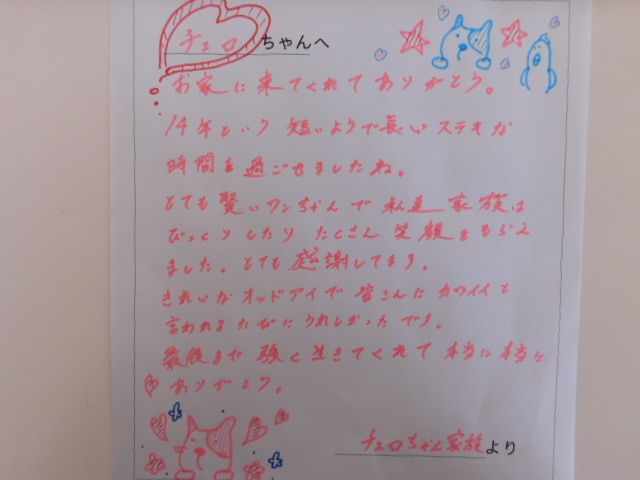 チェロちゃんへ
お家に来てくれてありがとう。
14年という短いようで長いステキな
時間を過ごせましたね。
とても賢いワンちゃんで私達家族は
びっくりしたりたくさん笑顔をもらえ
ました。とても感謝してます。
きれいなオッドアイで皆さんにカワイイと
言われるたびにうれしかったです。
最後まで強く生きてくれて本当に本当に
ありがとう。
チェロちゃん家族より